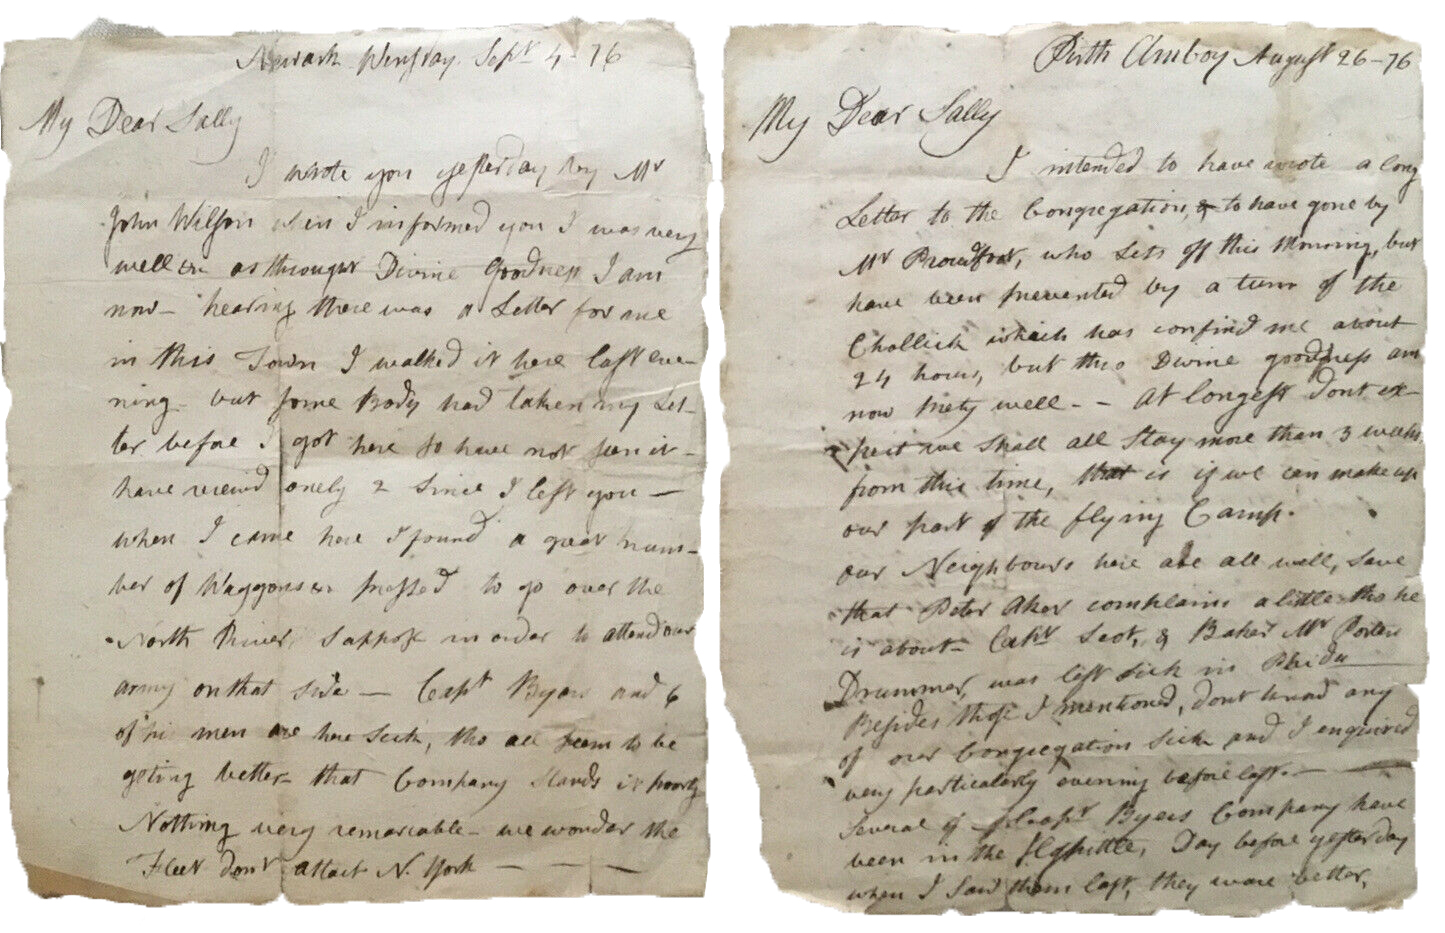 Newark Wensday Sepr 4-76
My Dear Sally
I wrote you yesterday by Mr
John Wilson when I informed you I was very
well as throught Divine Goodness I am
now - hearing there was a Letter for me
in this Town I walked it here last eve-
ning - but some Body had taken my Let-
ter before I got here so have not seen it -
have receivd onely 2 Since I left you -
when I came here I found a great num-
ber of Waggons pressed to go over the
North River, Suppose in order to attend our
army on that side - Capt Byers and 6
of his men are here Sick, tho all seem to be
geting better - that Company Stands it poorly
Nothing very remarcable - we wonder the
Fleet don't attact N. York - - -
Perth Amboy August 26-76
My Dear Sally
I intended to have wrote a long
Letter to the Congregation, & to have gone by
Mr Proudfoot, who Sets off this Morning, but
have been prevented by a turn of the
Chollick which has confind me about
24 hours, but thro Divine goodness am
now prety well - - At Longest dont ex-
pect we shall all Stay more than 3 weeks
from this time, that is if we can make up
our part of the flying Camp.
our Neighbours here are all well, save
that Peter Aker complains a little tho he
is about - Capt Scot, & Baker Mr Porters
Drummer, was left sick in Philda
Besides those I mentioned, dont know any
of our Congregation Sick and I enquired
very particularly evening before last. -
Several of Capt Byers Company have
been in the Hospittle, Day before yesterday
when I saw them last, they ware better,